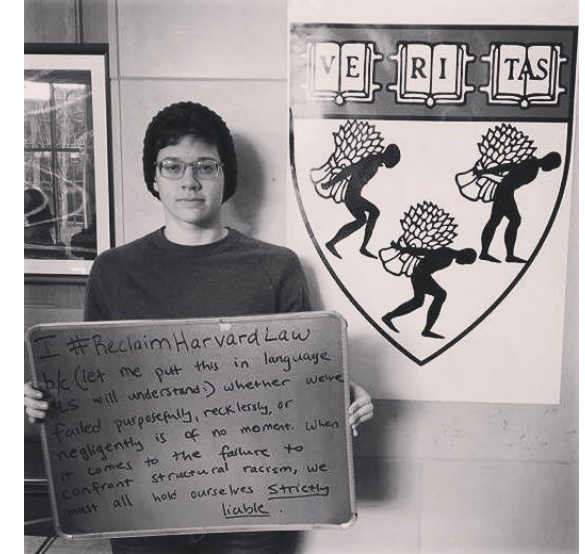 VE RI TAS
I #ReclaimHarvardLaw
b/c (let me put this in language
HLS will understand:) whether we've
failed purposefully, recklessly, or
negligently is of no moment. When
it comes to the failure to
confront structural racism, we
must all hold ourselves strictly
liable.